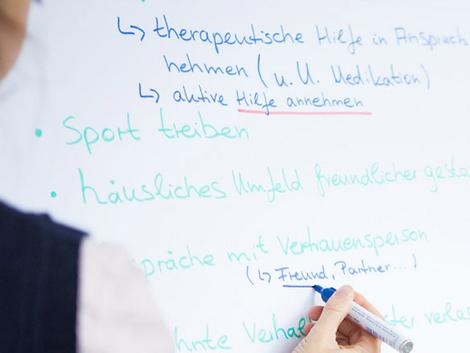 ↳ therapeutische Hilfe in Anspruch
nehmen (u. U. Medikation)
↳ aktive Hilfe annehmen
• Sport treiben
• häusliches Umfeld freundlicher gesta
präche mit Vertrauensperson
(↳ Freund, Partner...)
hnte Verhal ter verlas